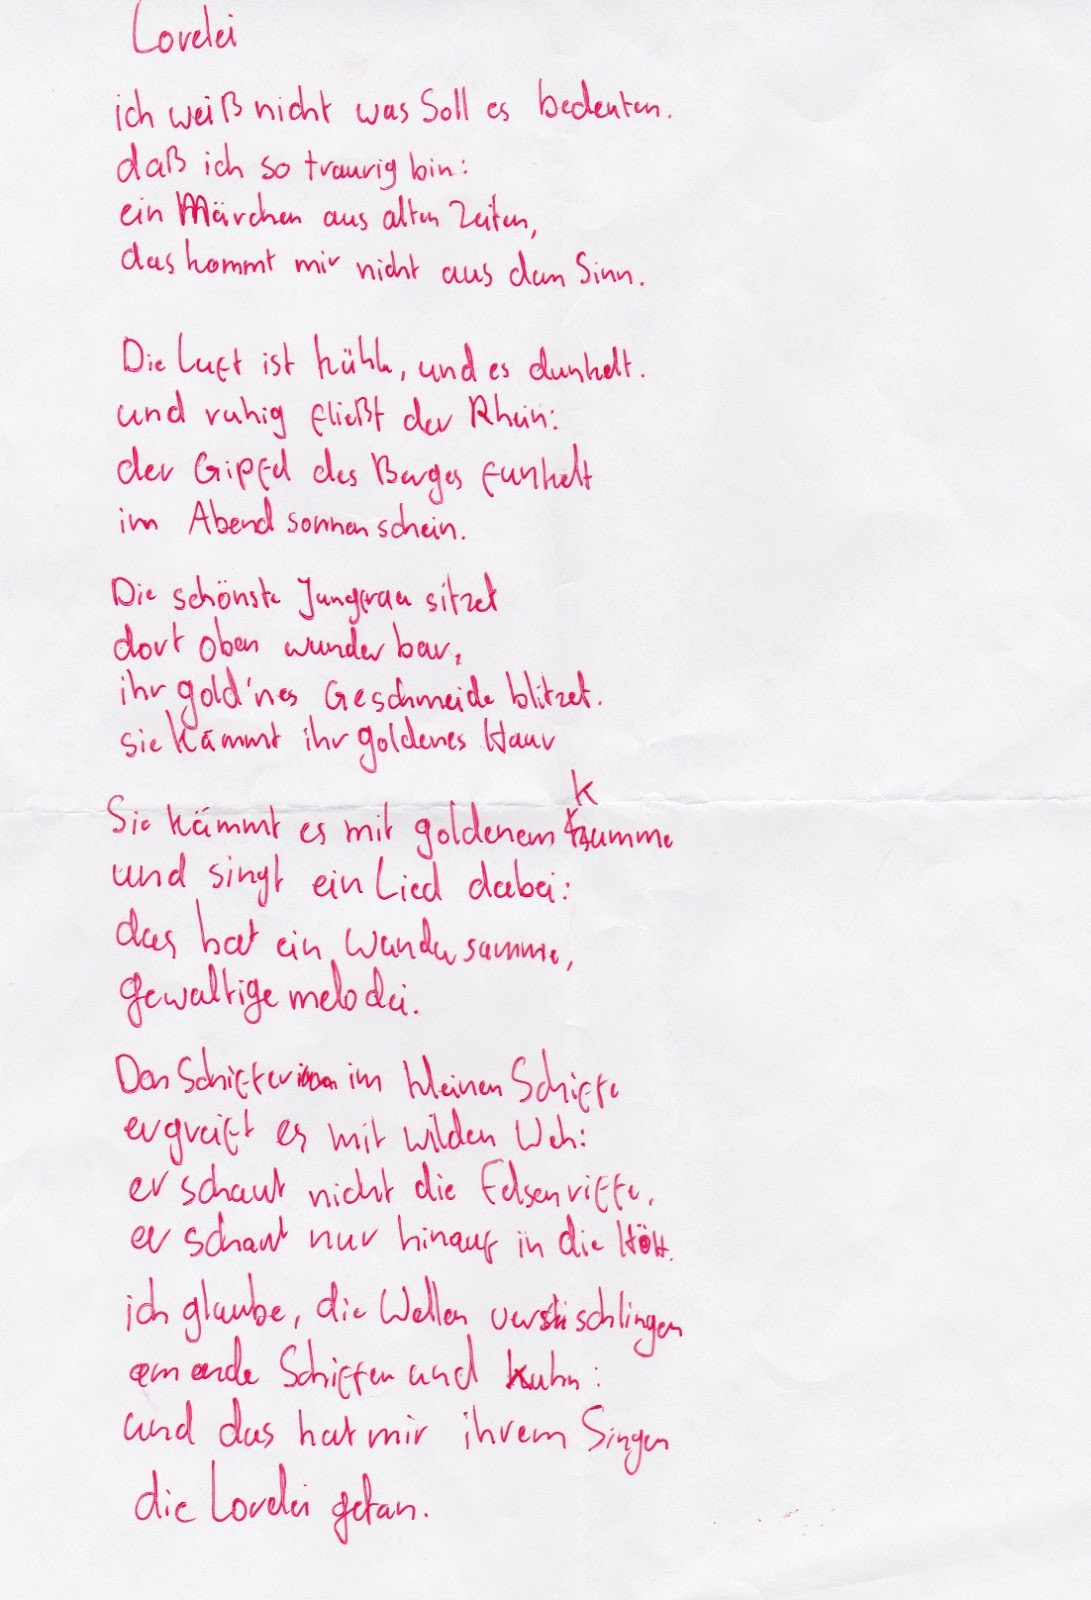 Lorelei
ich weiß nicht was Soll es bedeuten.
daß ich so traurig bin:
ein Märchen aus alten Zeiten,
das kommt mir nicht aus dem Sinn.
Die Luft ist kühle, und es dunkelt.
und ruhig fließt der Rhein:
der Gipfel des Berges funkelt
im Abendsonnenschein.
Die schönste Jungfrau sitzet
dort oben wunderbar,
ihr gold'nes Geschmeide blitzet.
sie kämmt ihr goldenes Haar
Sie kämmt es mit goldenem Kamme
und singt ein Lied dabei:
das hat ein Wundersamme,
gewaltige melodei.
Den Schiffer im kleinen Schiffe
ergreift es mit wilden Weh:
er schaut nicht die Felsenriffe,
er schaut nur hinauf in die Höh.
ich glaube, die Wellen verschlingen
am ende Schiffer und Kahn:
und das hat mir ihrem Singen
die Lorelei getan.